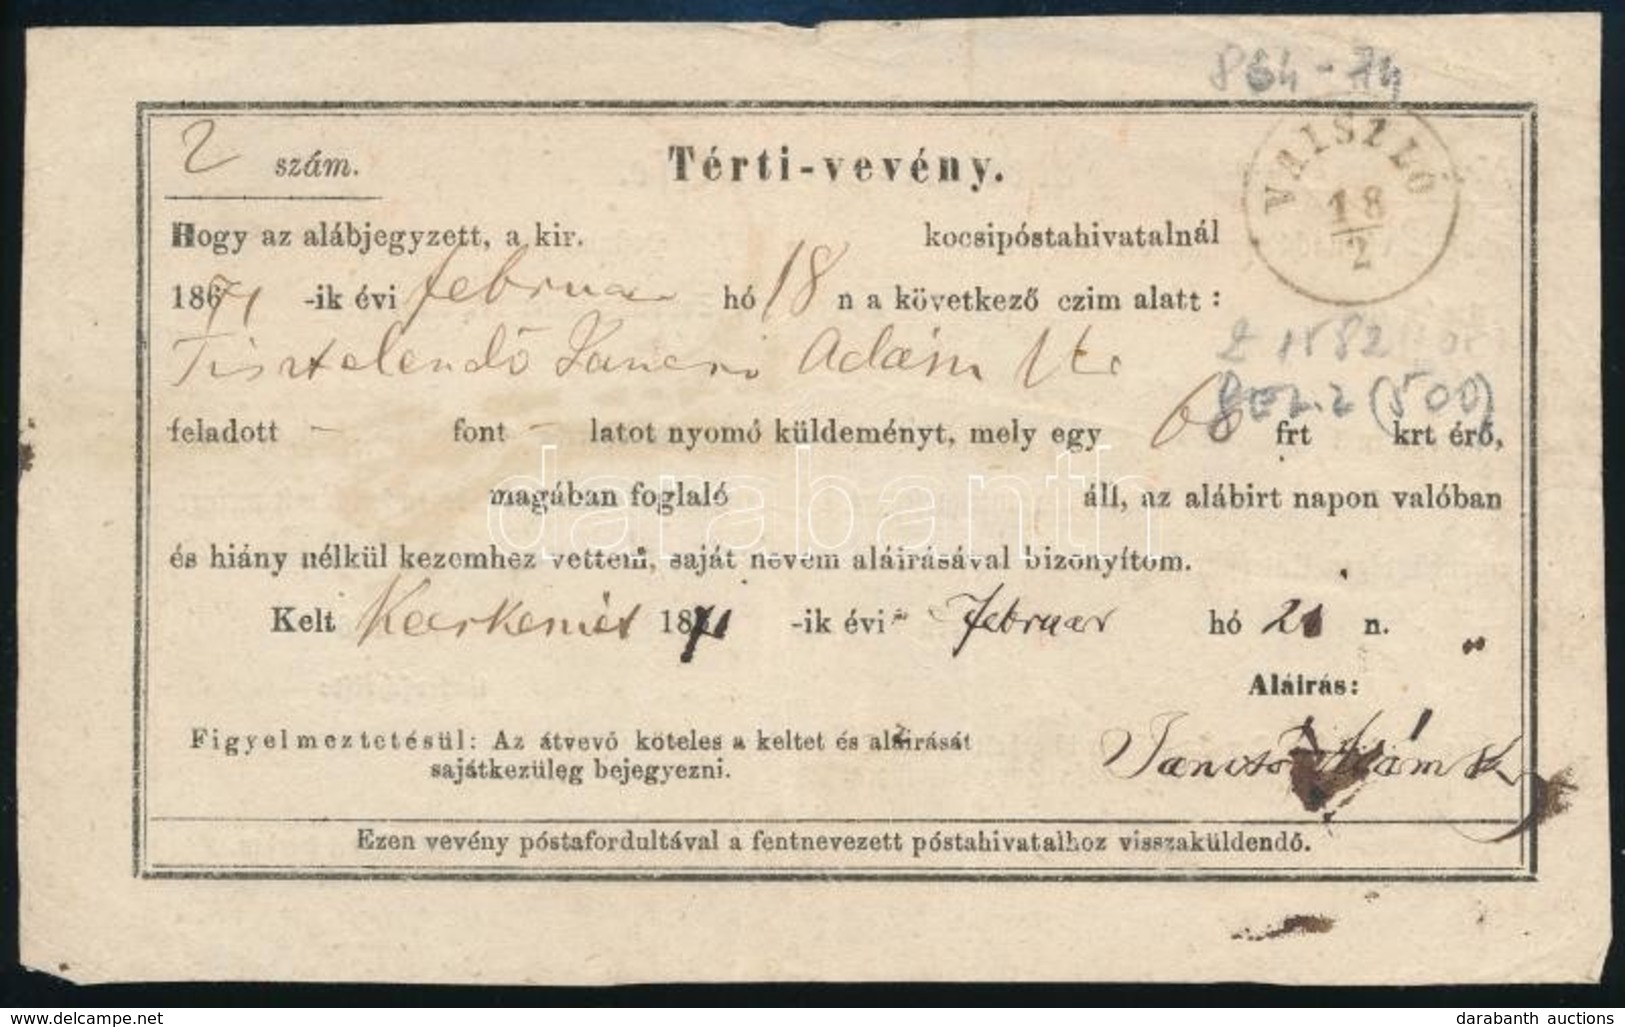 864-74
2 szám.
Térti-vevény.
VAISZLÓ
18
2
Hogy az alábjegyzett, a kir. kocsipóstahivatalnál
1871 -ik évi februar hó 18 n a következő czim alatt :
Tisztelendő Adám
2 1882
(500)
feladott – font – latot nyomó küldeményt, mely egy 68 frt krt érő,
magában foglaló áll, az alábirt napon valóban
és hiány nélkül kezemhez vettem, saját nevem aláirásával bizonyítom.
Kelt 1871 -ik évi Februar hó 21 n.
Aláirás:
Figyelmeztetésül: Az átvevő köteles a keltet és aláirását
sajátkezüleg bejegyezni.
Adám
Ezen vevény póstafordultával a fentnevezett póstahivatalhoz visszaküldendő.
darabanth
delcampe.net
darabanth auctions